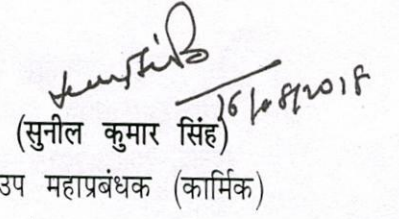 16/08/2018
(सुनील कुमार सिंह)
उप महाप्रबंधक (कार्मिक)